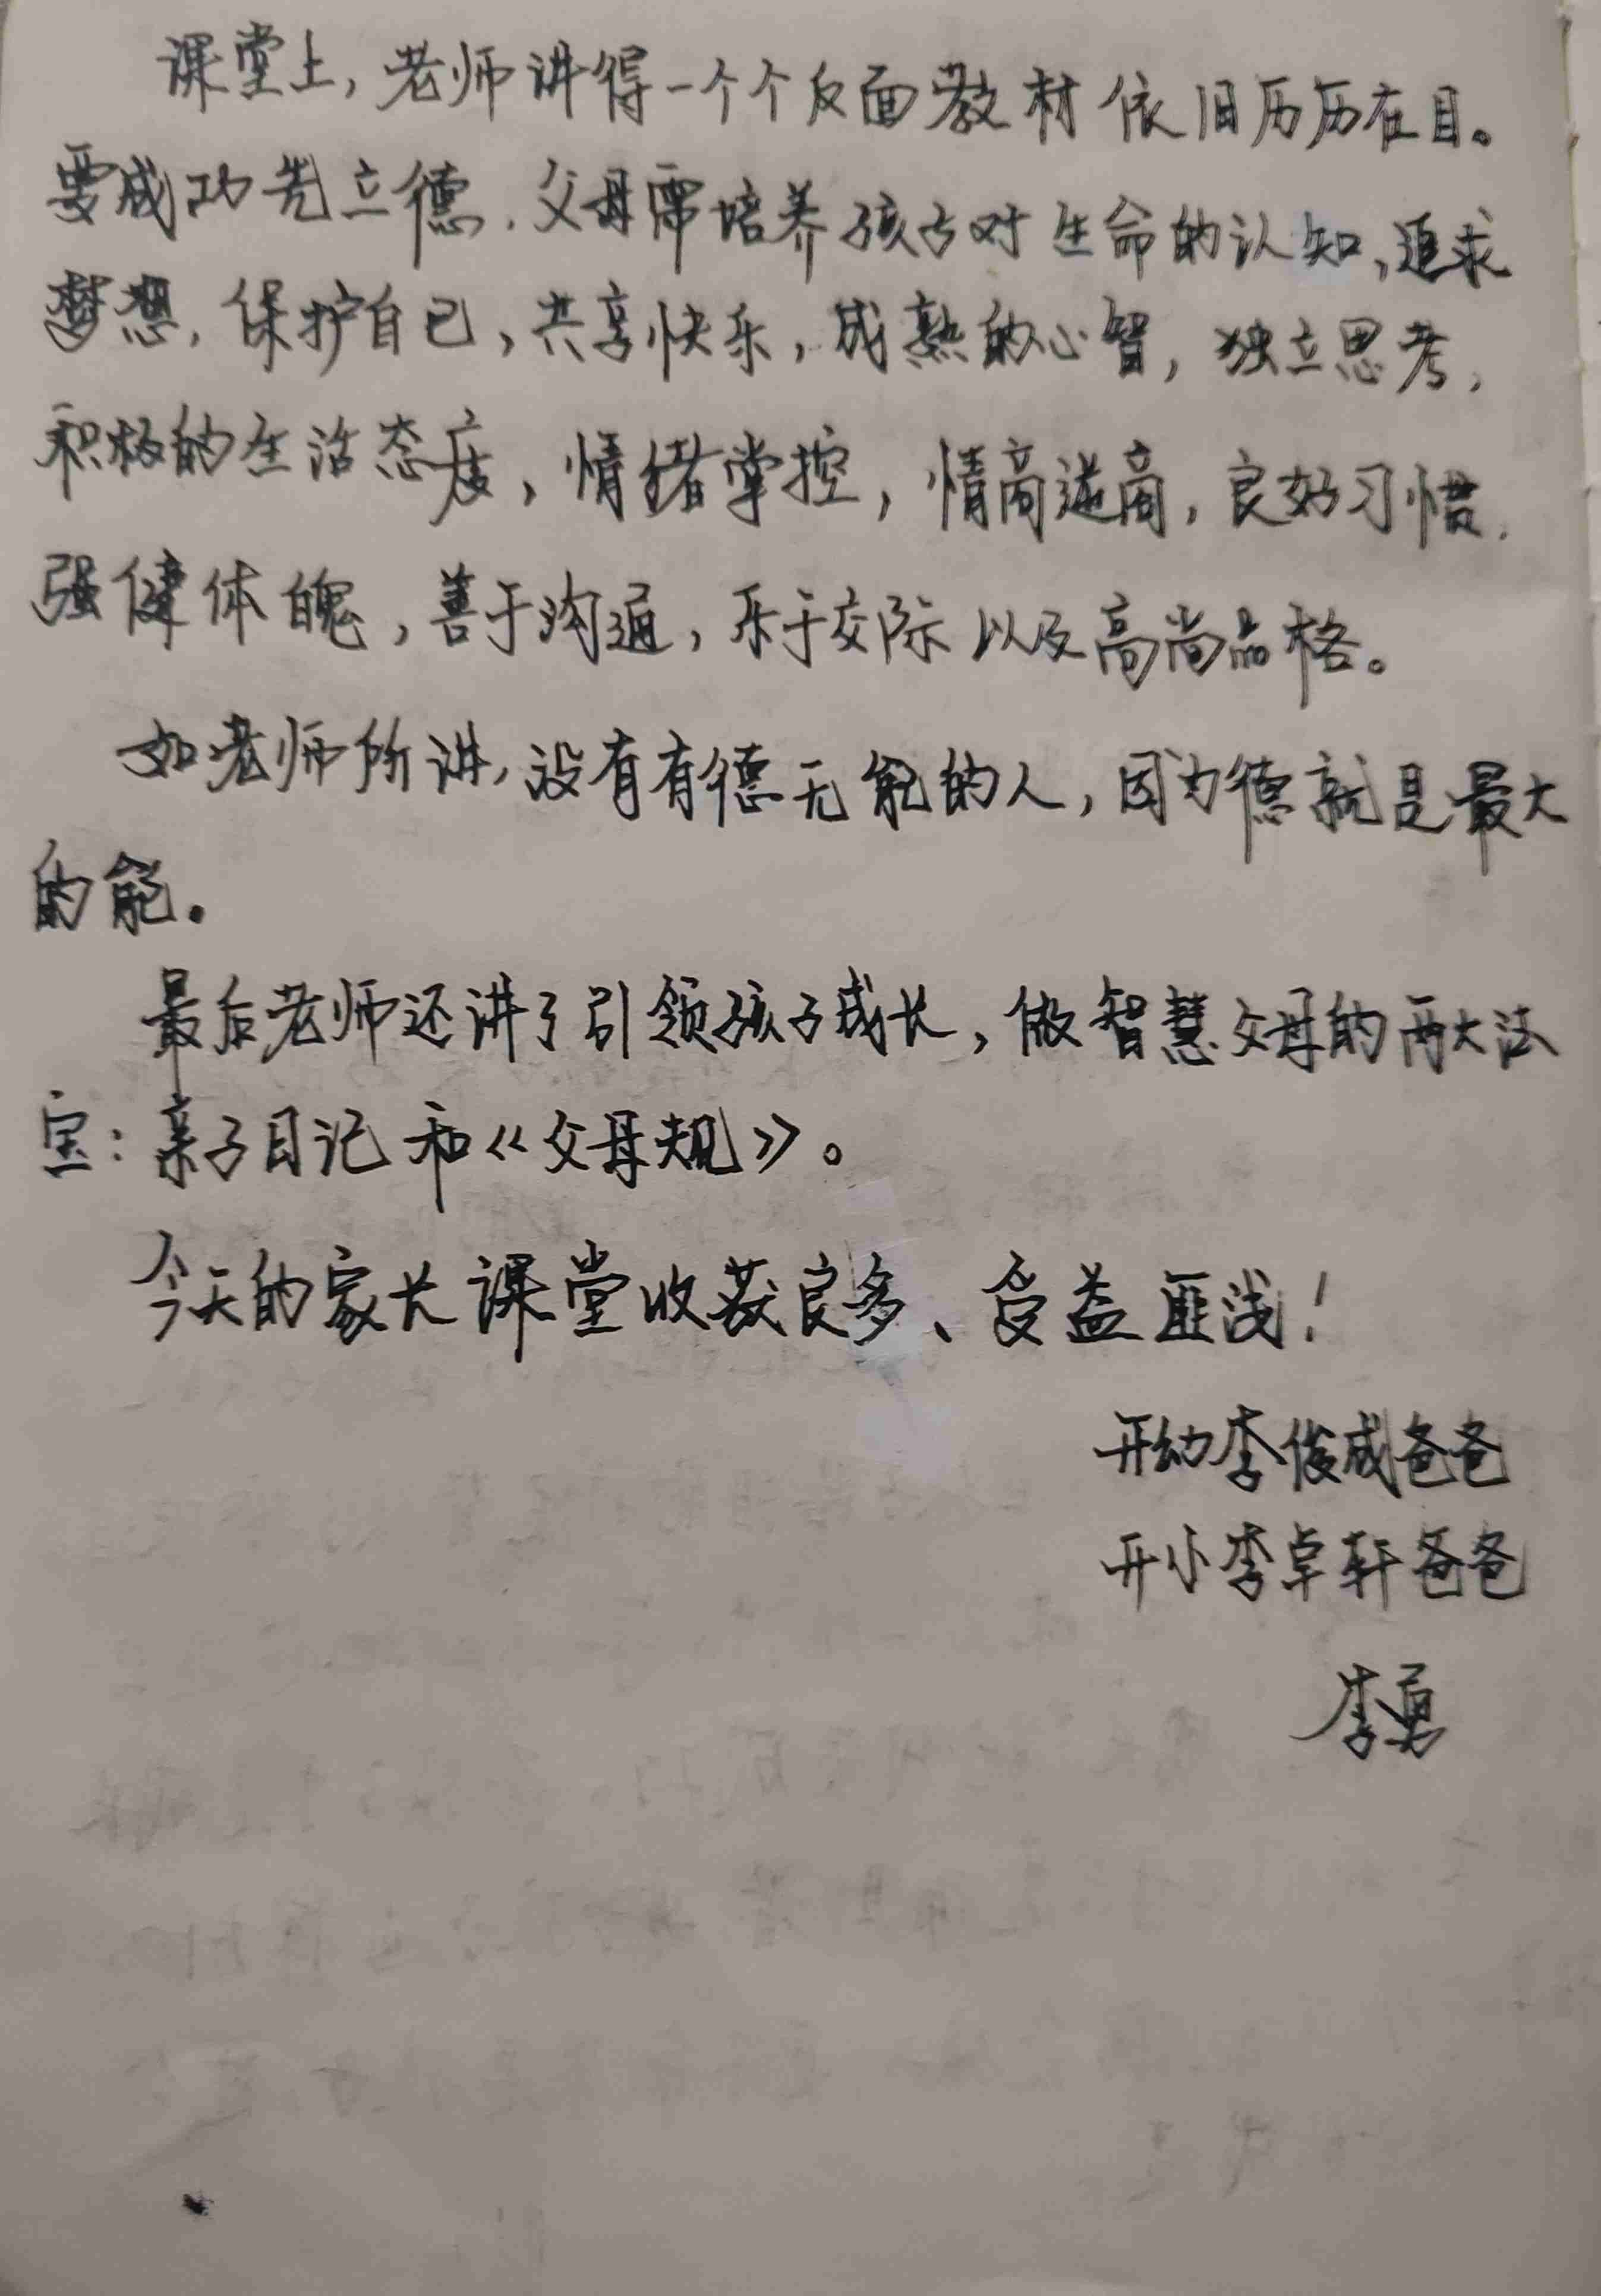 课堂上，老师讲得一个个反面教材依旧历历在目。
要成功先立德，父母需培养孩子对生命的认知，追求
梦想，保护自己，共享快乐，成熟的心智，独立思考，
积极的生活态度，情绪掌控，情商逆商，良好习惯，
强健体魄，善于沟通，乐于交际以及高尚品格。
如老师所讲，没有有德无能的人，因为德就是最大
的能。
最后老师还讲了引领孩子成长，做智慧父母的两大法
宝：亲子日记和《父母规》。
今天的家长课堂收获良多、受益匪浅！
开幼李俊成爸爸
开小李卓轩爸爸
李勇